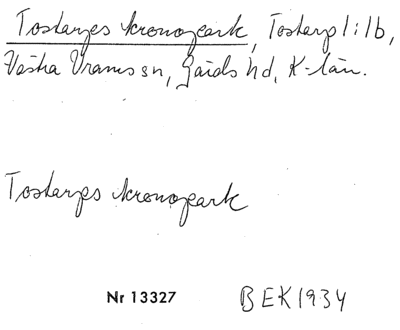 Tostarps kronopark, Tostarp 1:1b,
Västra Vrams sn, Gärds hd, K-län.
Tostarps kronopark
Nr 13327 BEK1934